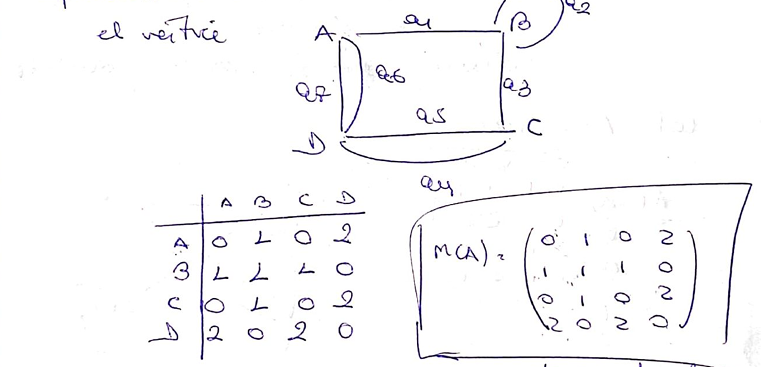 el vértice
A a1 B a2
a7 a6 a3
a5
D C
a4
A B C D
A 0 1 0 2
B 1 1 1 0
C 0 1 0 2
D 2 0 2 0
M(A) =
0 1 0 2
1 1 1 0
0 1 0 2
2 0 2 0